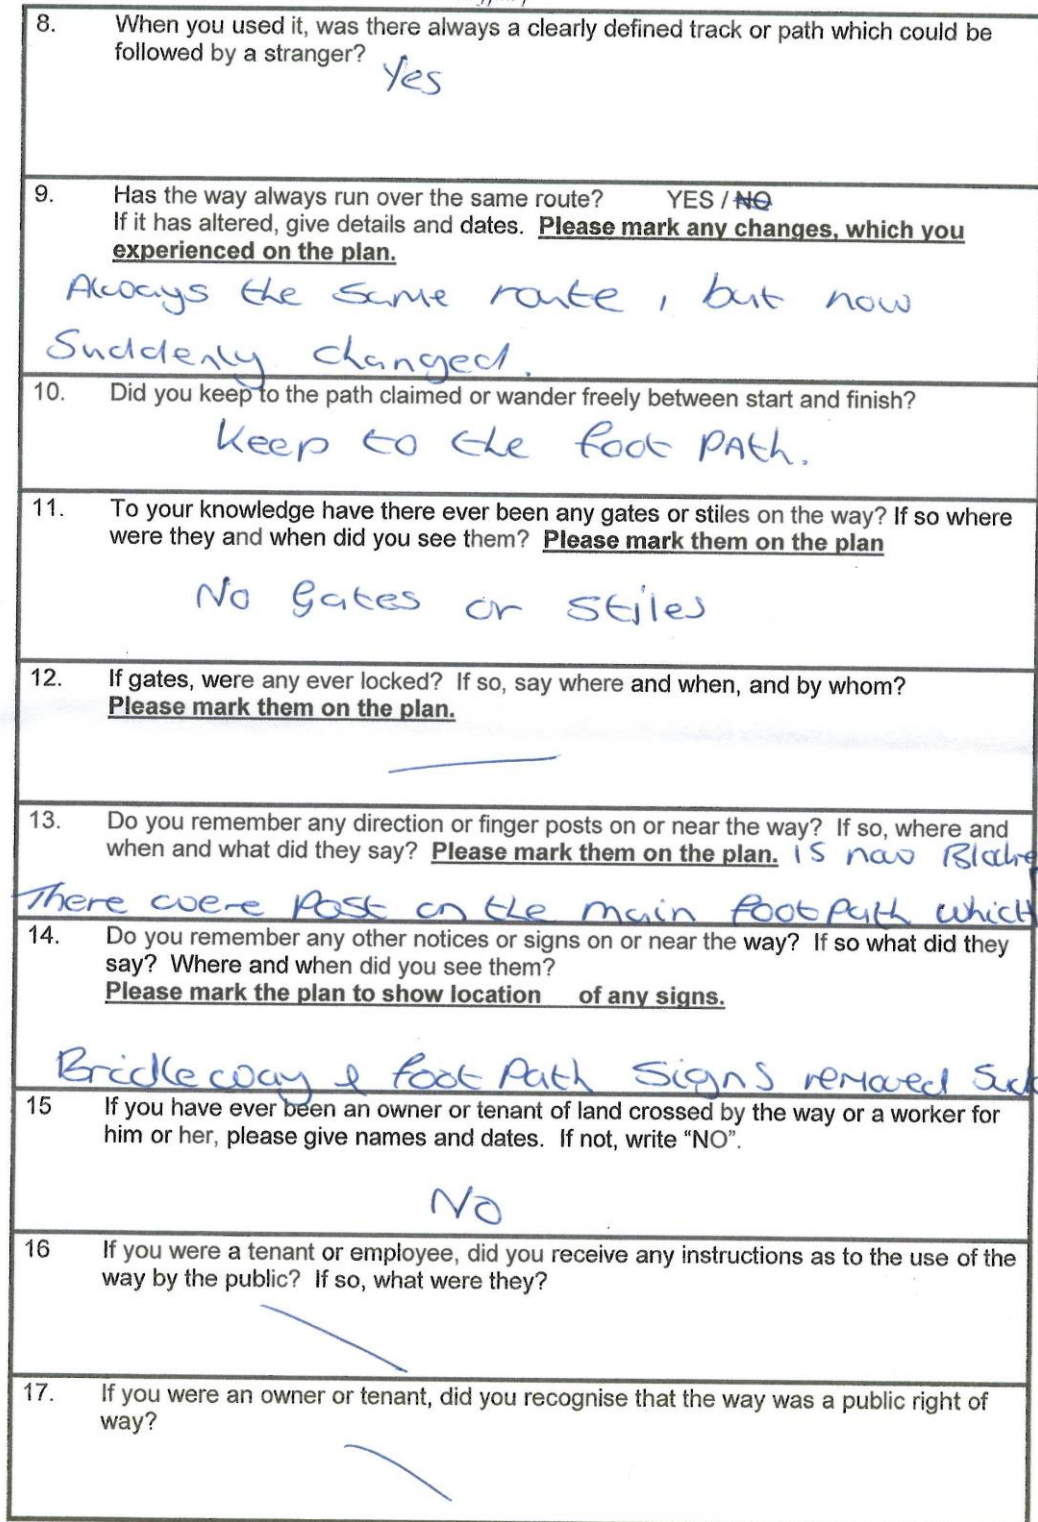 8. When you used it, was there always a clearly defined track or path which could be
followed by a stranger?
Yes
9. Has the way always run over the same route? YES / NO
If it has altered, give details and dates. Please mark any changes, which you
experienced on the plan.
Always the same route, but now
Suddenly changed.
10. Did you keep to the path claimed or wander freely between start and finish?
Keep to the foot PAth.
11. To your knowledge have there ever been any gates or stiles on the way? If so where
were they and when did you see them? Please mark them on the plan
No Gates or Stiles
12. If gates, were any ever locked? If so, say where and when, and by whom?
Please mark them on the plan.
13. Do you remember any direction or finger posts on or near the way? If so, where and
when and what did they say? Please mark them on the plan. is now
There were Post on the main footpath which
14. Do you remember any other notices or signs on or near the way? If so what did they
say? Where and when did you see them?
Please mark the plan to show location of any signs.
Bridleway & foot Path Signs removed
15 If you have ever been an owner or tenant of land crossed by the way or a worker for
him or her, please give names and dates. If not, write “NO”.
No
16 If you were a tenant or employee, did you receive any instructions as to the use of the
way by the public? If so, what were they?
17. If you were an owner or tenant, did you recognise that the way was a public right of
way?